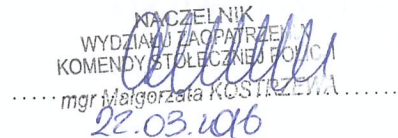 NACZELNIK
WYDZIAŁU ZAOPATRZENIA
KOMENDY STOŁECZNEJ POLICJI
mgr Małgorzata KOSTRZEWA
22.03.2016